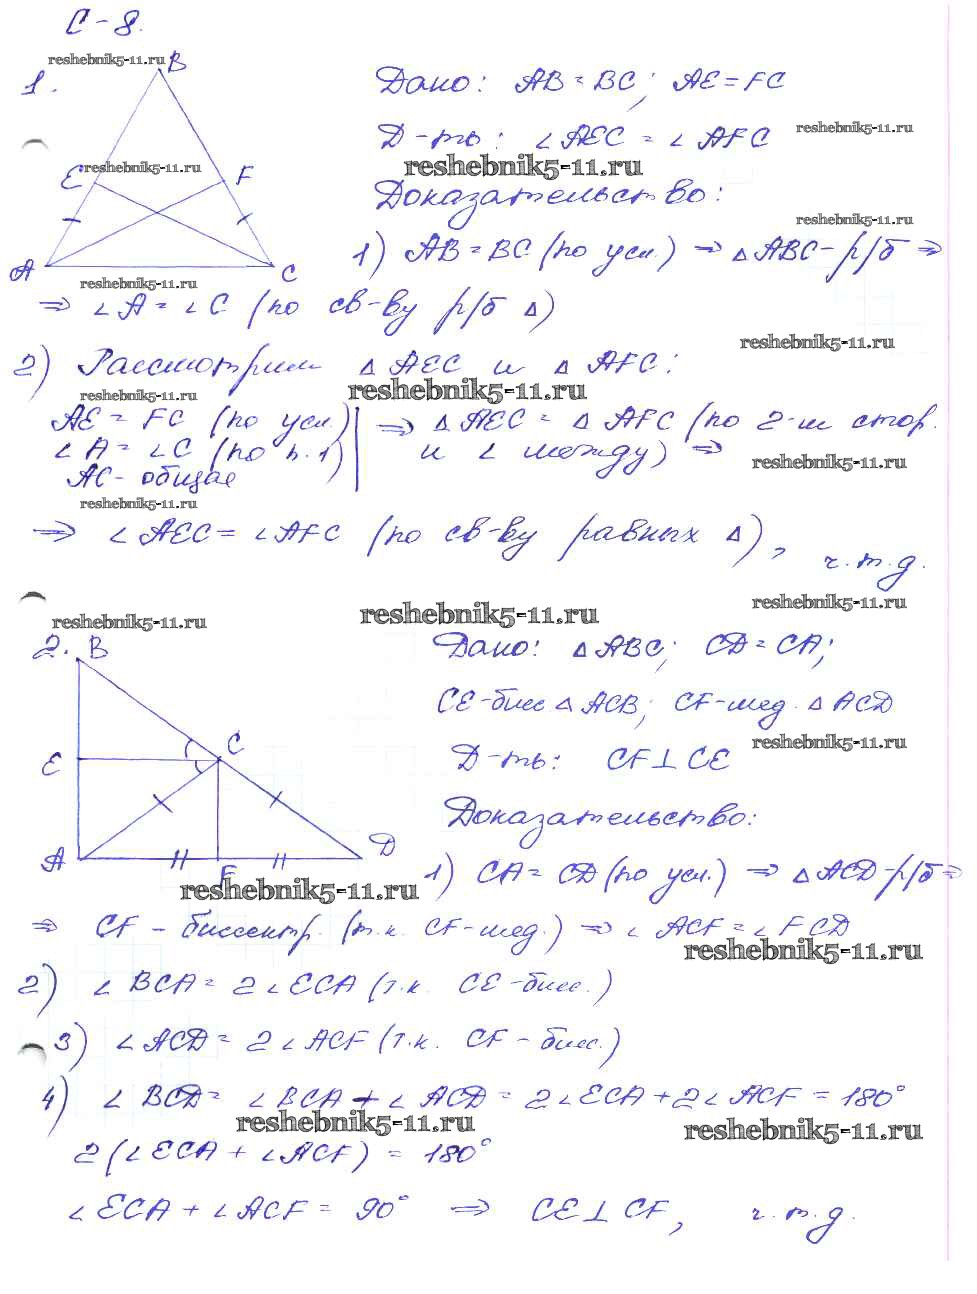 С-8.
reshebnik5-11.ru
1.
B
Дано: AB = BC; AE = FC
Д-ть: ∠AEC = ∠AFC
reshebnik5-11.ru
reshebnik5-11.ru
reshebnik5-11.ru
E
F
Доказательство:
reshebnik5-11.ru
1) AB = BC (по усл.) ⇒ △ABC - р/б ⇒
A
C
reshebnik5-11.ru
⇒ ∠A = ∠C (по св-ву р/б △)
reshebnik5-11.ru
2) Рассмотрим △AEC и △AFC:
reshebnik5-11.ru
reshebnik5-11.ru
AE = FC (по усл.) | ⇒ △AEC = △AFC (по 2-м стор.
∠A = ∠C (по п.1) | и ∠ между) ⇒
AC - общая
reshebnik5-11.ru
reshebnik5-11.ru
⇒ ∠AEC = ∠AFC (по св-ву равных △),
ч.т.д.
reshebnik5-11.ru
reshebnik5-11.ru
reshebnik5-11.ru
2. B
Дано: △ABC; CD = CA;
CE - бисс △ACB; CF - мед. △ACD
reshebnik5-11.ru
Д-ть: CF ⊥ CE
E
C
Доказательство:
A
F
D
reshebnik5-11.ru
1) CA = CD (по усл.) ⇒ △ACD - р/б ⇒
⇒ CF - биссектр. (т.к. CF - мед.) ⇒ ∠ACF = ∠FCD
reshebnik5-11.ru
2) ∠BCA = 2∠ECA (т.к. CE - бисс.)
3) ∠ACD = 2∠ACF (т.к. CF - бисс.)
4) ∠BCD = ∠BCA + ∠ACD = 2∠ECA + 2∠ACF = 180°
reshebnik5-11.ru
reshebnik5-11.ru
2(∠ECA + ∠ACF) = 180°
∠ECA + ∠ACF = 90° ⇒ CE ⊥ CF, ч.т.д.